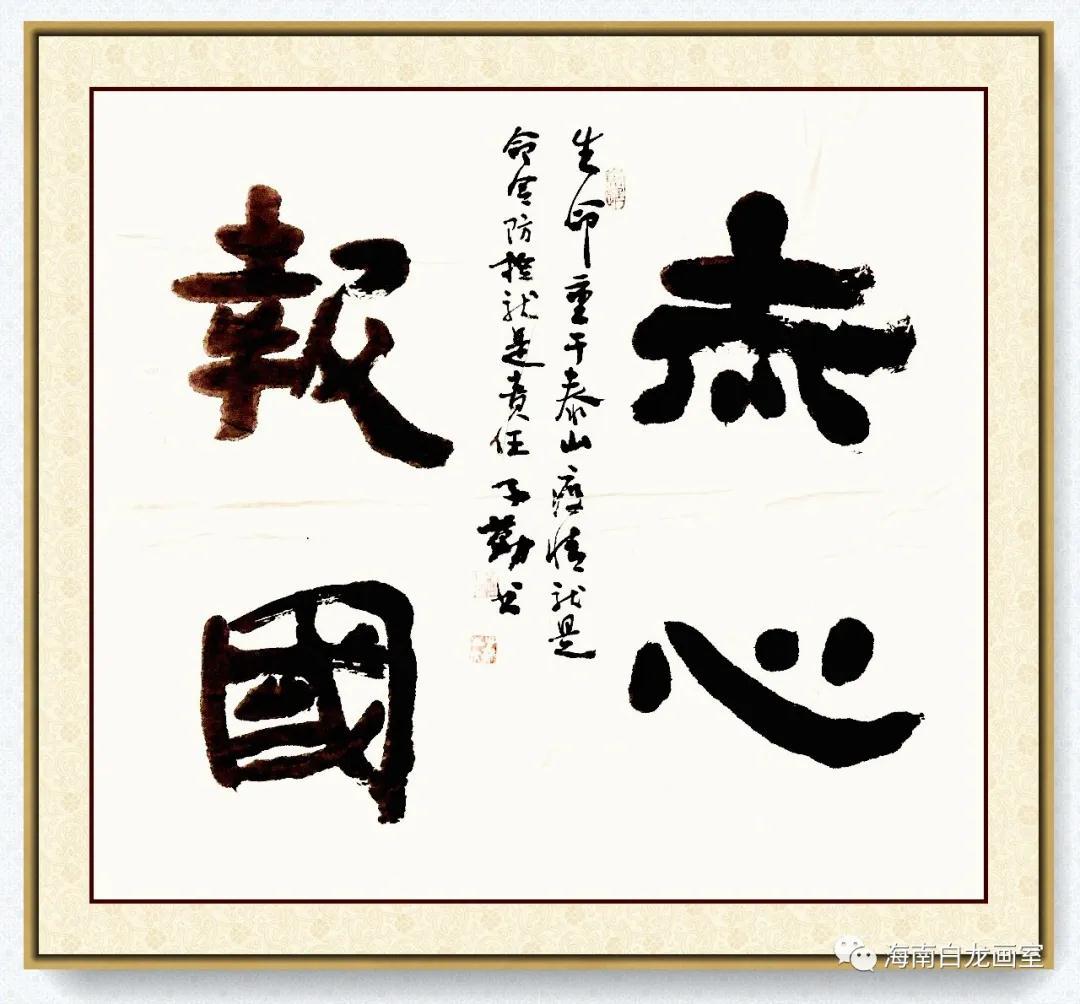 赤心
報國
生命重于泰山疫情就是
命令防控就是責任 子勤书
海南白龙画室